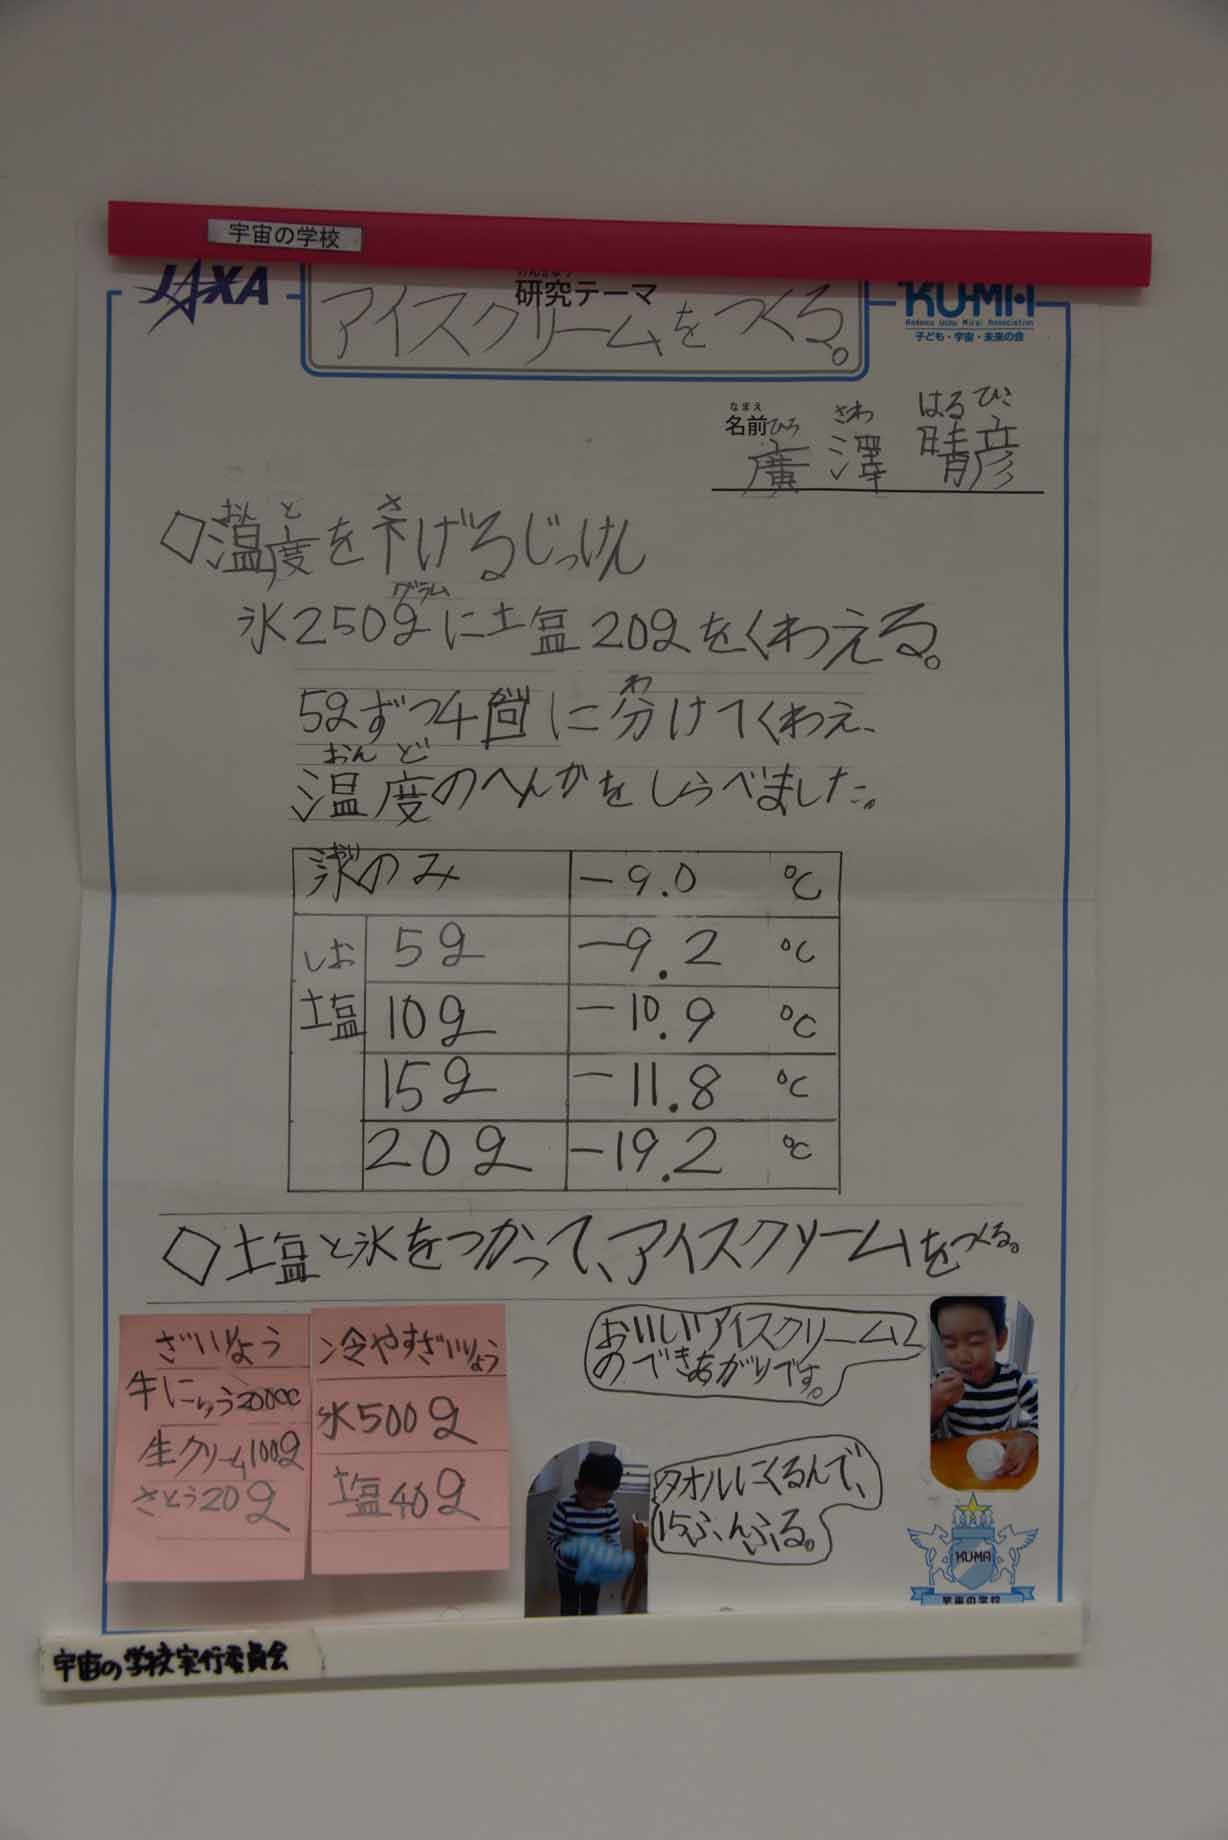 宇宙の学校
JAXA
けんきゅう
研究テーマ
アイスクリームをつくる。
KU-MA
Kodomo Uchu Mirai Association
子ども・宇宙・未来の会
なまえ
名前
ひろ さわ はる ひこ
廣澤 晴彦
おん ど さ
◇温度を下げるじっけん
グラム
氷250gに塩20gをくわえる。
わ
5gずつ4回に分けてくわえ、
おん ど
温度のへんかをしらべました。
氷のみ -9.0 ℃
しお
塩
5g -9.2 ℃
10g -10.9 ℃
15g -11.8 ℃
20g -19.2 ℃
◇塩と氷をつかって、アイスクリームをつくる。
ざいりょう
牛にゅう200cc
生クリーム100g
さとう20g
冷やすざいりょう
氷500g
塩40g
おいしいアイスクリーム
のできあがりです。
タオルにくるんで、
15ふんふる。
KUMA
宇宙の学校
宇宙の学校実行委員会